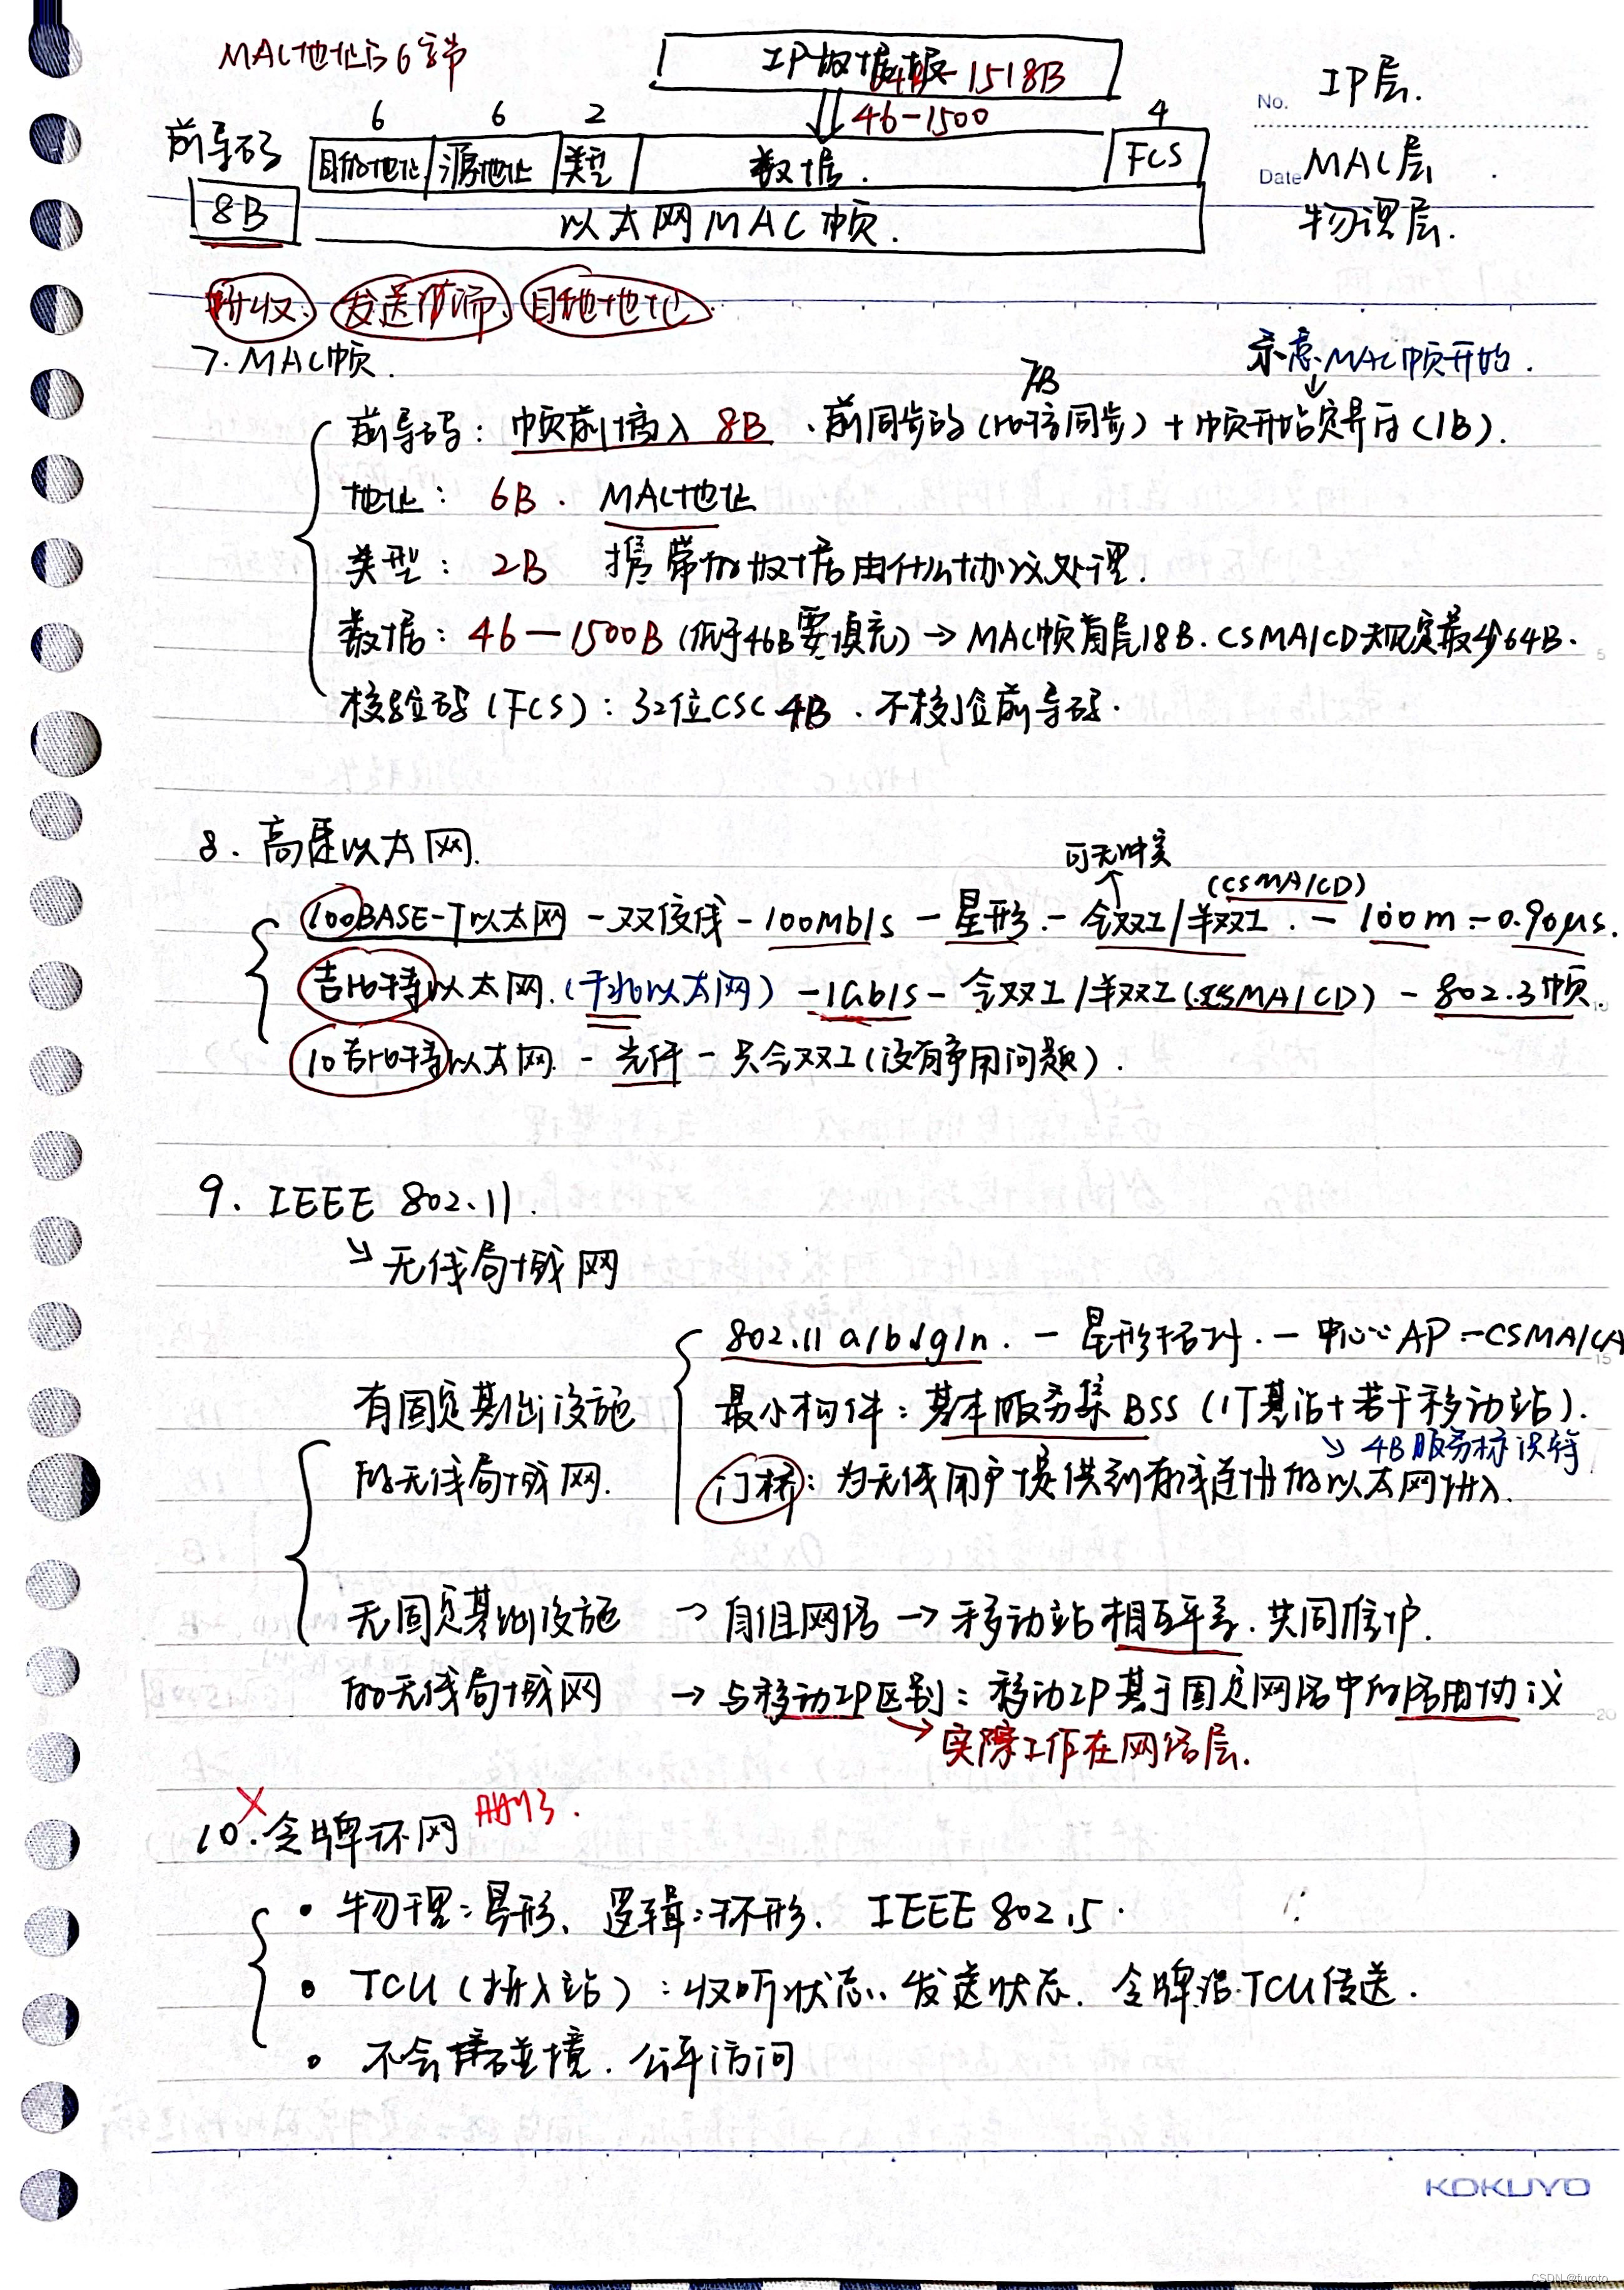 MAC地址占6字节
IP数据报
64B-1518B
No. IP层.
6 6 2 46-1500 4
前导码 目的地址 源地址 类型 数据. FCS
Date MAC层
8B 以太网MAC帧. 物理层.
接收 发送 目的地址
7. MAC帧.
示意MAC帧开始.
7B
前导码: 帧前插入 8B. 前同步码(比特同步) + 帧开始定界符(1B).
地址: 6B. MAC地址
类型: 2B 携带的数据由什么协议处理.
数据: 46—1500B (低于46B要填充) → MAC帧首尾18B. CSMA/CD规定最少64B.
校验码(FCS): 32位CSC 4B. 不校验前导码.
8. 高速以太网.
可无冲突
(CSMA/CD)
100BASE-T以太网 - 双绞线 - 100Mb/s - 星形 - 全双工/半双工. - 100m - 0.96μs.
吉比特以太网. (千兆以太网) - 1Gb/s - 全双工/半双工(CSMA/CD) - 802.3帧.
10吉比特以太网. - 光纤 - 只全双工(没有争用问题).
9. IEEE 802.11.
↘ 无线局域网
802.11 a/b/g/n. - 星形拓扑. - 中心AP - CSMA/CA
有固定基础设施 最小构件: 基本服务集BSS (1个基站+若干移动站).
↘ 4B服务标识符
的无线局域网. 门桥: 为无线用户提供到有线连接的以太网接入.
无固定基础设施 → 自组网络 → 移动站相互平等. 共同维护.
的无线局域网 → 与移动IP区别: 移动IP基于固定网络中的路由协议
→ 实际工作在网络层.
10. 令牌环网
• 物理: 星形、逻辑: 环形. IEEE 802.5.
• TCU (接入站): 收听状态、发送状态. 令牌沿TCU传送.
• 不会碰撞. 公平访问
KOKUYO
CSDN @furoto